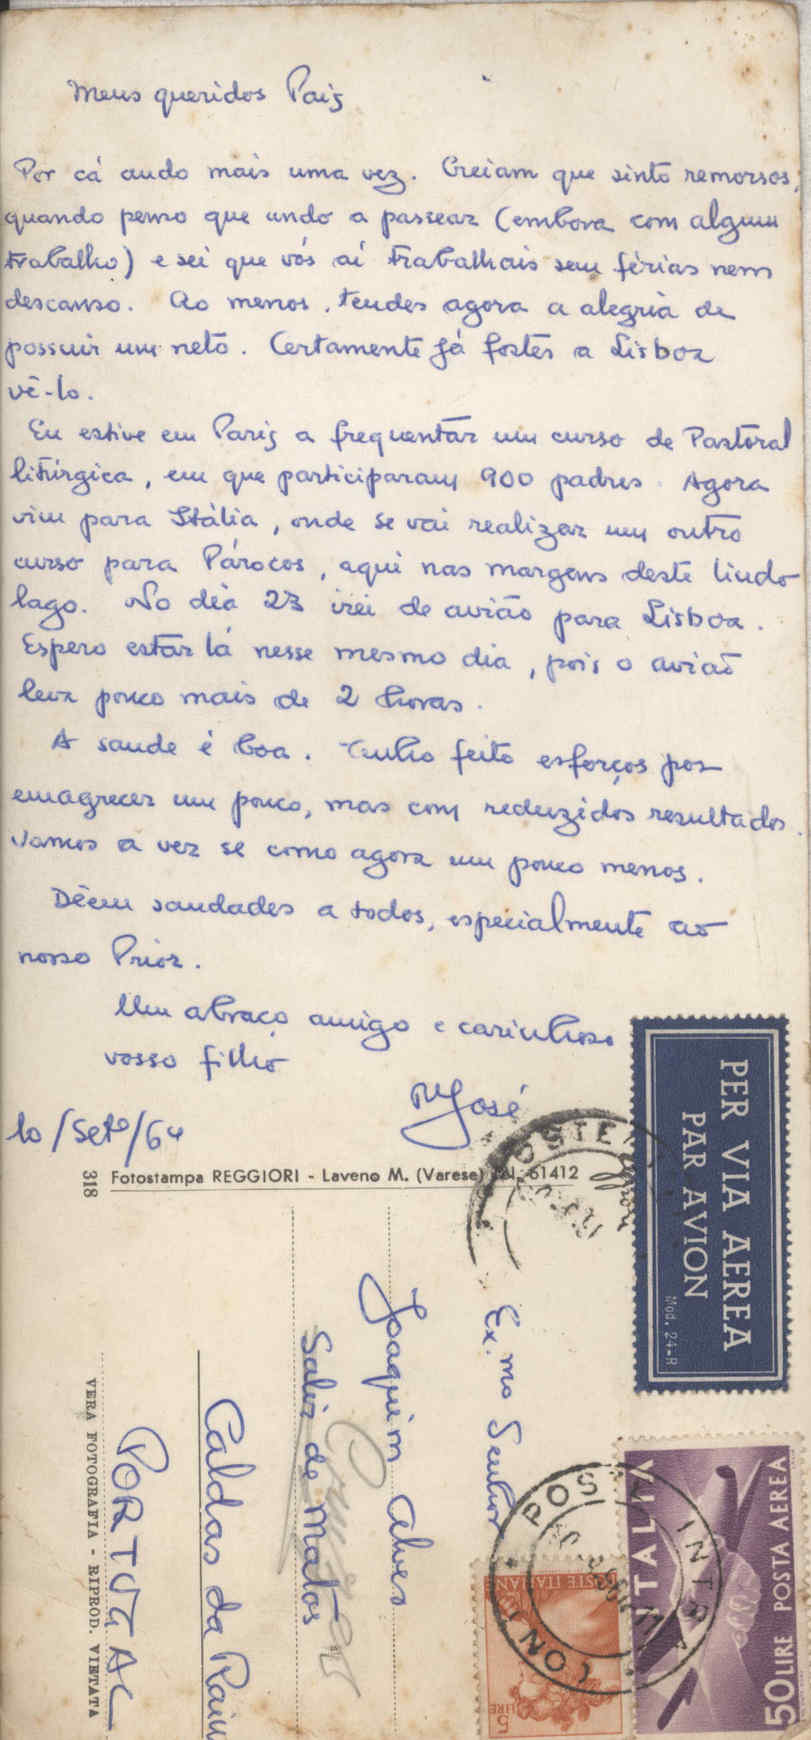 Meus queridos Pais
Por cá ando mais uma vez. Creiam que sinto remorsos,
quando penso que ando a passear (embora com algum
trabalho) e sei que vós aí trabalhais sem férias nem
descanso. Ao menos, tendes agora a alegria de
possuir um neto. Certamente já fostes a Lisboa
vê-lo.
Eu estive em Paris a frequentar um curso de Pastoral
litúrgica, em que participaram 900 padres. Agora
vim para Itália, onde se vai realizar um outro
curso para Párocos, aqui nas margens deste lindo
lago. No dia 23 irei de avião para Lisboa.
Espero estar lá nesse mesmo dia, pois o avião
leva pouco mais de 2 horas.
A saude é boa. Tenho feito esforços por
emagrecer um pouco, mas com reduzidos resultados.
Vamos a ver se como agora um pouco menos.
Dêem saudades a todos, especialmente ao
nosso Prior.
Um abraço amigo e carinhoso
vosso filho
José
10/Setº/64
318 Fotostampa REGGIORI - Laveno M. (Varese) 61412
PER VIA AEREA
PAR AVION
Mod. 24-B
Ex.mo Senhor
Joaquim Alves
Salir de Matos
Caldas da Rain
PORTUGAL
VERA FOTOGRAFIA - RIPROD. VIETATA
POSTE ITALIANE
5 LIRE
ITALIA
50 LIRE POSTA AEREA
POSTA INTRA